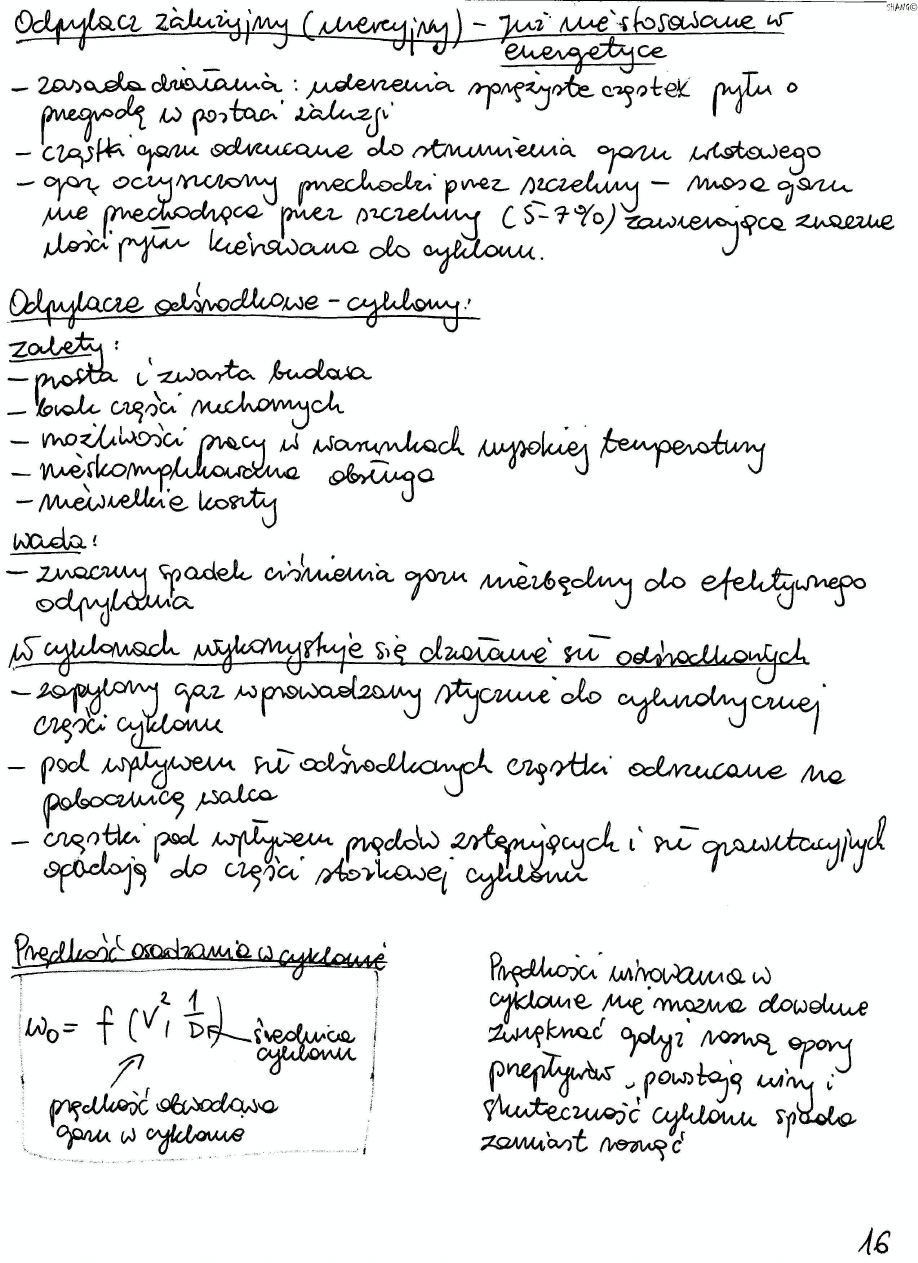 SHANG©
Odpylacz żaluzyjny (inercyjny) – już nie stosowane w
energetyce
– zasada działania : uderzenia sprężyste cząstek pyłu o
przegrodę w postaci żaluzji
– cząstki gazu odrzucane do strumienia gazu wlotowego
– gaz oczyszczony przechodzi przez szczeliny – masa gazu
nie przechodząca przez szczeliny (5-7%) zawierająca znaczne
ilości pyłu kierowana do cyklonu.
Odpylacze odśrodkowe – cyklony:
zalety:
– prosta i zwarta budowa
– brak części ruchomych
– możliwości pracy w warunkach wysokiej temperatury
– nieskomplikowana obsługa
– niewielkie koszty
wada:
– znaczny spadek ciśnienia gazu niezbędny do efektywnego
odpylania
W cyklonach wykorzystuje się działanie sił odśrodkowych
– zapylony gaz wprowadzany stycznie do cylindrycznej
części cyklonu
– pod wpływem sił odśrodkowych cząstki odrzucane na
pobocznicę walca
– cząstki pod wpływem prądów zstępujących i sił grawitacyjnych
opadają do części stożkowej cyklonu
Prędkość osadzania w cyklonie
w₀ = f (V²ᵢ 1/D) średnica
cyklonu
prędkość obwodowa
gazu w cyklonie
Prędkości wirowania w
cyklonie nie można dowolnie
zwiększać gdyż rosną opory
przepływów, powstają wiry i
skuteczność cyklonu spada
zamiast rosnąć
16